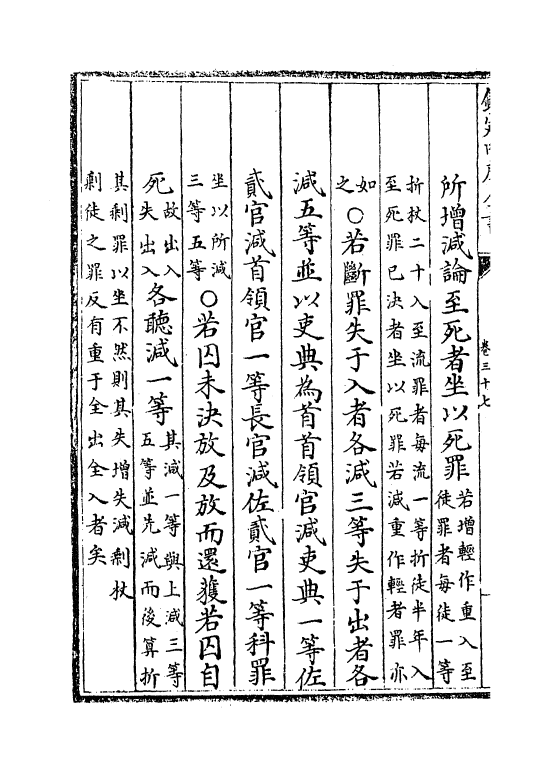 欽定四庫全書
卷三十七
所增減論至死者坐以死罪若增輕作重入至徒罪者每徒一等
折杖二十入至流罪者每流一等折徒半年入
至死罪已決者坐以死罪若減重作輕者罪亦
如之○若斷罪失于入者各減三等失于出者各
減五等並以吏典為首首領官減吏典一等佐
貳官減首領官一等長官減佐貳官一等科罪
坐以所減三等五等○若囚未決放及放而還獲若囚自
死故出入失出入各聽減一等其減一等與上減三等五等並先減而後算折
其剩罪以坐不然則其失增失減剩杖
剩徒之罪反有重于全出全入者矣